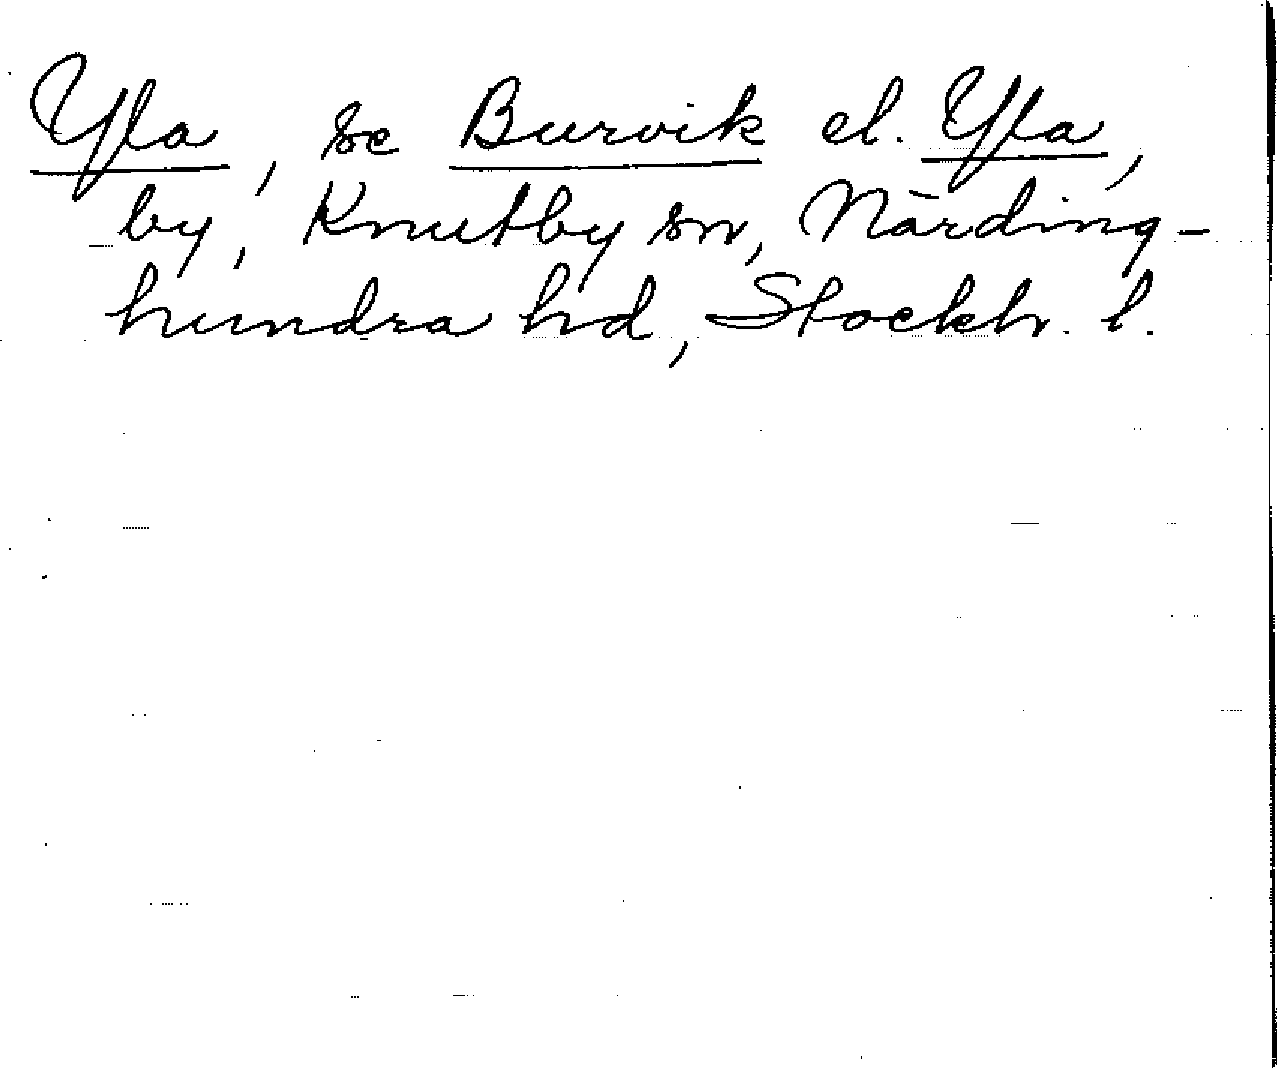 Yla, se Burvik el. Yla,
by, Knutby sn, Närding-
hundra hd, Stockh. l.